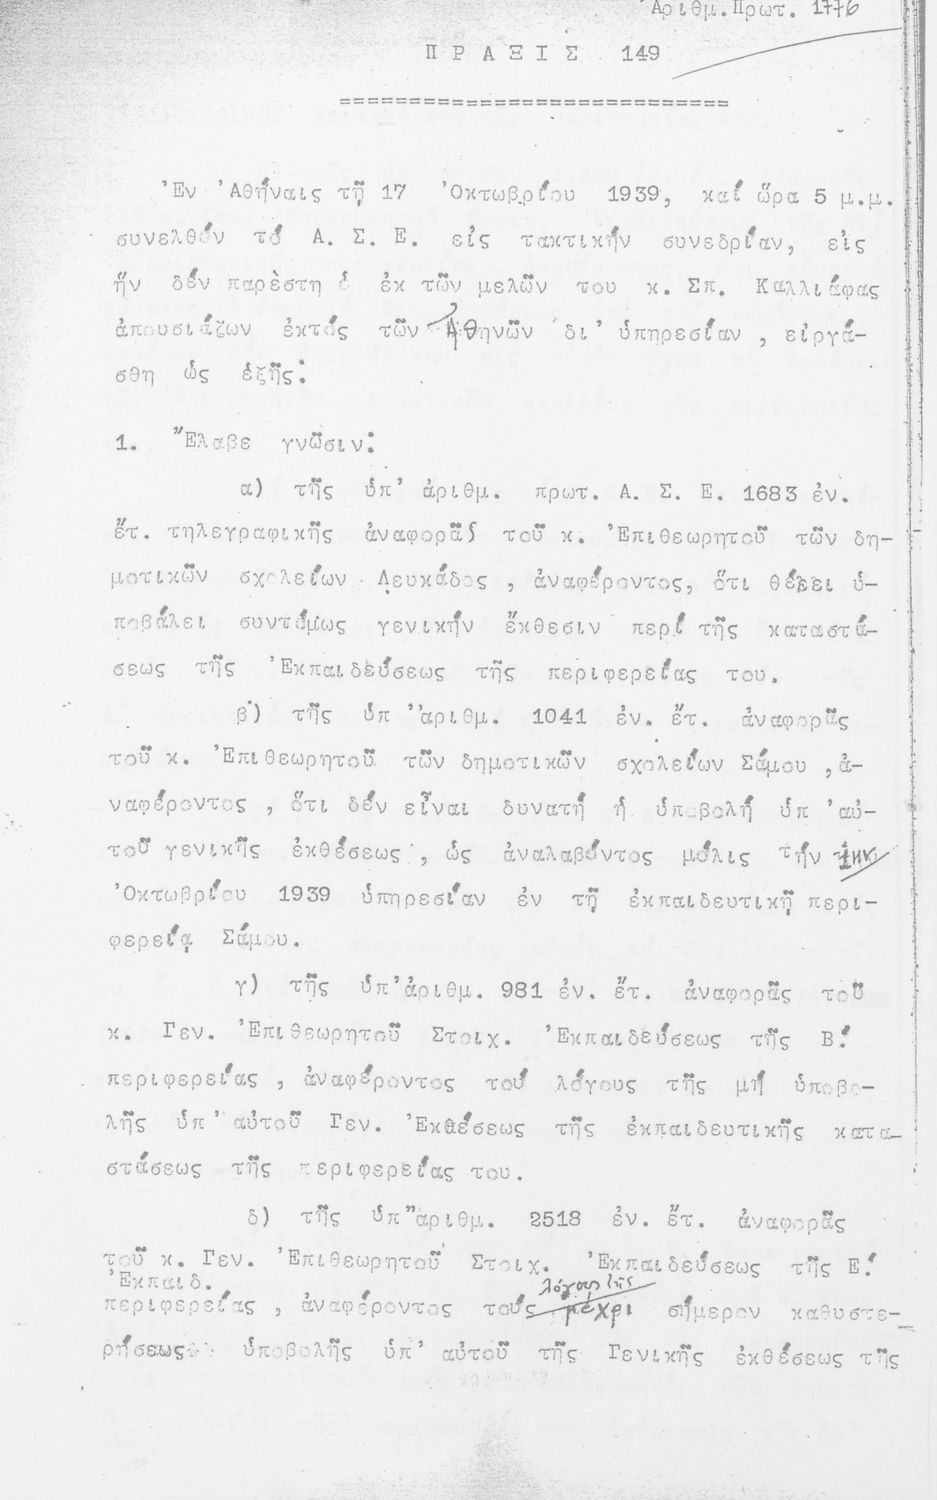 Ἀριθμ.Πρωτ. 1776
Π Ρ Α Ξ Ι Σ 149
==============================
Ἐν Ἀθήναις τῇ 17 Ὀκτωβρίου 1939, καί ὥρα 5 μ.μ.
συνελθόν τό Α. Σ. Ε. εἰς τακτικήν συνεδρίαν, εἰς
ἥν δέν παρὲστη ὁ ἐκ τῶν μελῶν του κ. Σπ. Καλλιάφας
ἀπουσιάζων ἐκτός τῶν Ἀθηνῶν δι' ὑπηρεσίαν , εἰργά-
σθη ὡς ἑξῆς:
1. Ἔλαβε γνῶσιν:
α) τῆς ὑπ' ἀριθμ. πρωτ. Α. Σ. Ε. 1683 ἐν.
ἔτ. τηλεγραφικῆς ἀναφορᾶς τοῦ κ. Ἐπιθεωρητοῦ τῶν δη-
μοτικῶν σχολείων Λευκάδος , ἀναφέροντος, ὅτι θέλει ὑ-
ποβάλει συντόμως γενικήν ἔκθεσιν περί τῆς καταστά-
σεως τῆς Ἐκπαιδεύσεως τῆς περιφερείας του.
β) τῆς ὑπ' ἀριθμ. 1041 ἐν. ἔτ. ἀναφορᾶς
τοῦ κ. Ἐπιθεωρητοῦ τῶν δημοτικῶν σχολείων Σάμου , ἀ-
ναφέροντος , ὅτι δέν εἶναι δυνατή ἡ ὑποβολή ὑπ 'αὐ-
τοῦ γενικῆς ἐκθέσεως , ὡς ἀναλαβόντος μόλις τήν 1ην
Ὀκτωβρίου 1939 ὑπηρεσίαν ἐν τῇ ἐκπαιδευτικῇ περι-
φερείᾳ Σάμου.
γ) τῆς ὑπ'ἀριθμ. 981 ἐν. ἔτ. ἀναφορᾶς τοῦ
κ. Γεν. Ἐπιθεωρητοῦ Στοιχ. Ἐκπαιδεύσεως τῆς Β΄.
περιφερείας , ἀναφέροντος τού λόγους τῆς μή ὑποβο-
λῆς ὑπ' αὐτοῦ Γεν. Ἐκθέσεως τῆς ἐκπαιδευτικῆς κατα-
στάσεως τῆς περιφερείας του.
δ) τῆς ὑπ"ἀριθμ. 2518 ἐν. ἔτ. ἀναφορᾶς
τοῦ κ. Γεν. Ἐπιθεωρητοῦ Στοιχ. Ἐκπαιδεύσεως τῆς Ε΄.
Ἐκπαιδ. λόγους τῆς
περιφερείας , ἀναφέροντος τούς μέχρι σήμερον καθυστε-
ρήσεως ὑποβολῆς ὑπ' αὐτοῦ τῆς Γενικῆς ἐκθέσεως τῆς